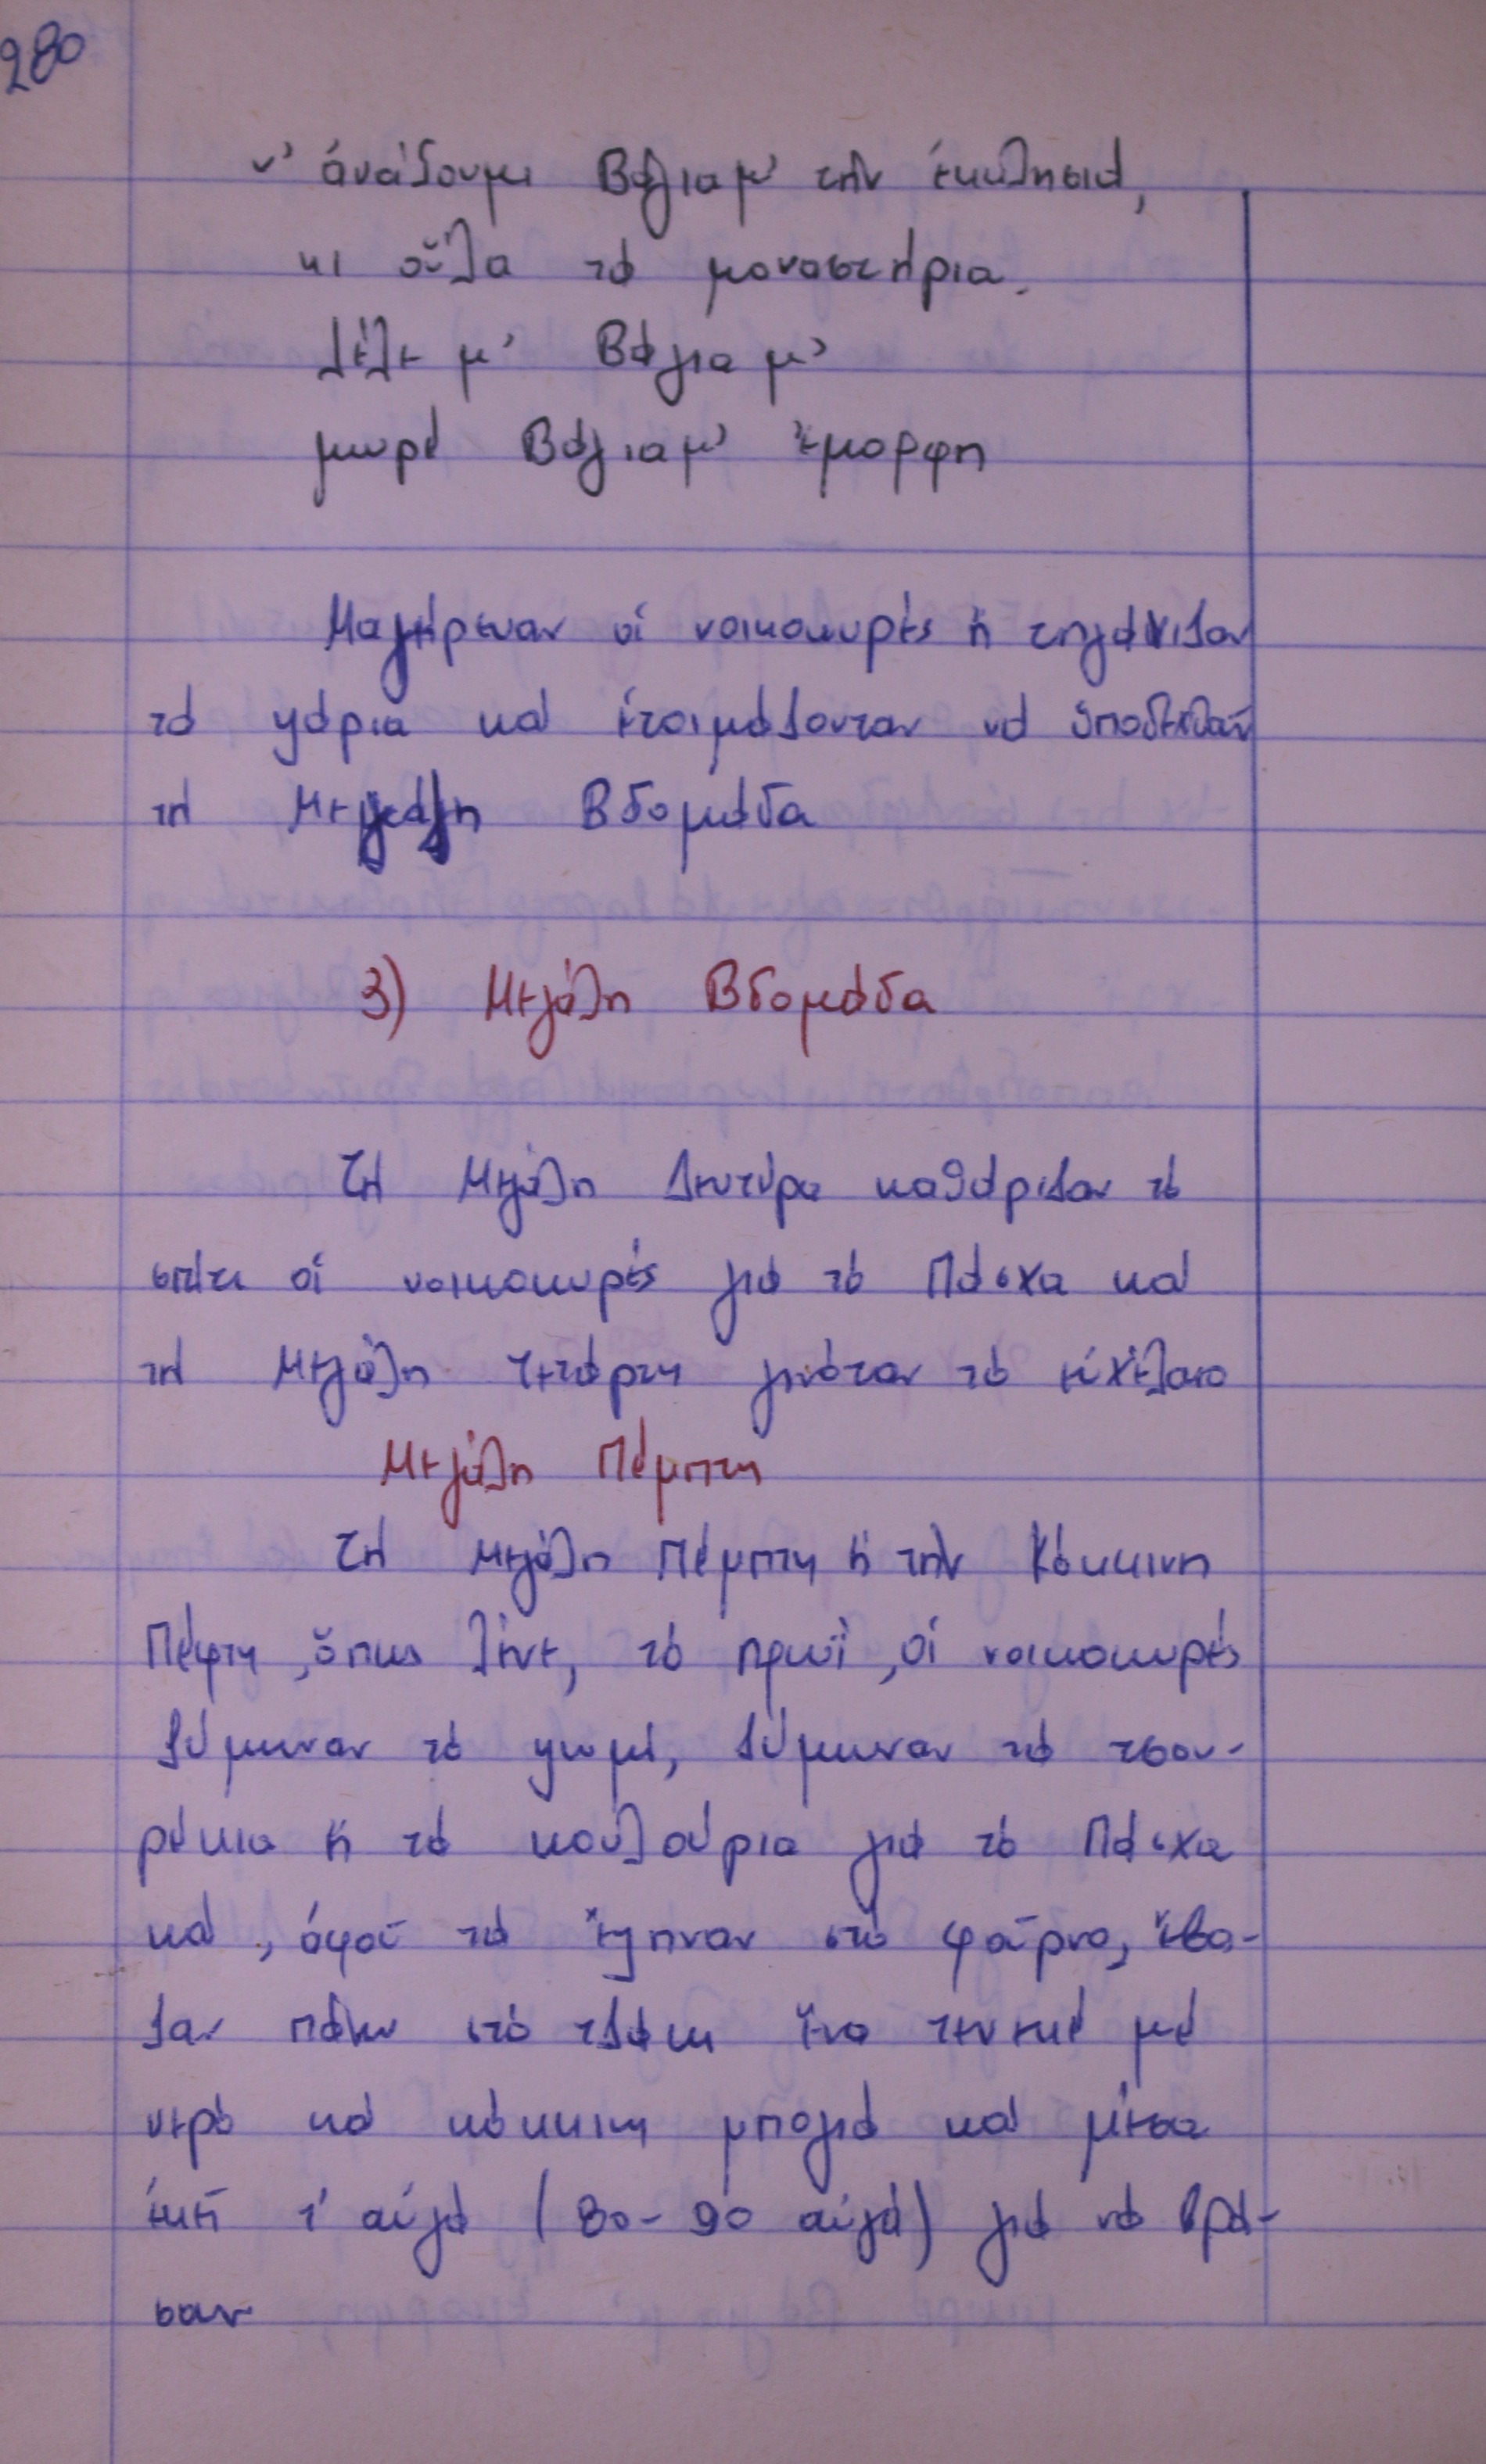 280
ν' ἀνάζουμι Βάγιαμ' τὴν ἐκκλησιά,
κι οὔλα τὰ μοναστήρια.
Δέλε μ' Βάγια μ'
μωρέ Βάγιαμ' ἔμορφη
Μαγείρευαν οἱ νοικοκυρές ἤ τηγάνιζαν
τὰ ψάρια καὶ ἑτοιμάζονταν νὰ ὑποδεχθοῦν
τὴ Μεγάλη Βδομάδα
3) Μεγάλη Βδομάδα
Τὴ Μεγάλη Δευτέρα καθάριζαν τὸ
σπίτι οἱ νοικοκυρές γιὰ τὸ Πάσχα καὶ
τὴ Μεγάλη Τετάρτη γινόταν τὸ εὐχέλαιο
Μεγάλη Πέμπτη
Τὴ Μεγάλη Πέμπτη ἤ τὴν Κόκκινη
Πέφτη, ὅπως λένε, τὸ πρωΐ, οἱ νοικοκυρές
ζύμωναν τὸ ψωμί, ζύμωναν τὰ τσου-
ρέκια ἤ τὰ κουλούρια γιὰ τὸ Πάσχα
καὶ, ἀφοῦ τὰ ἔψηναν στὸ φοῦρνο, ἔβα-
ζαν πάνω στὸ τζάκι ἕνα τεντζερέ μὲ
νερὸ καὶ κόκκινη μπογιὰ καὶ μέσα
ἐκεῖ τ' αὐγὰ (80-90 αὐγά) γιὰ νὰ βρά-
σουν